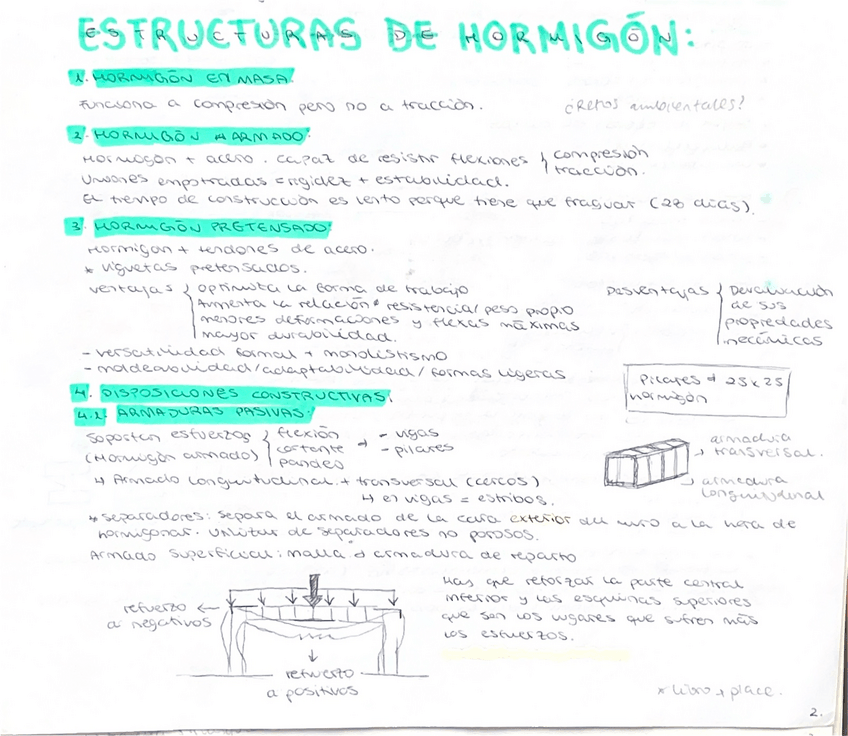 ESTRUCTURAS DE HORMIGÓN:
1. HORMIGÓN EN MASA:
Funciona a compresión pero no a tracción.
¿Retos ambientales?
2. HORMIGÓN ARMADO:
Hormogón + acero. Capaz de resistir flexiones { compresión
tracción.
Uniones empotradas = rigidez + estabilidad.
El tiempo de construcción es lento porque tiene que fraguar (28 días).
3. HORMIGÓN PRETENSADO:
Hormigon + tendones de acero.
* viguetas pretensados.
ventajas { optimiza la forma de trabajo
Aumenta la relación resistencia/peso propio
menores deformaciones y flexas máximas
mayor durabilidad.
Desventajas { Devaluación
de sus
propiedades
mecánicas
- versatilidad formal +
- moldeavilidad/adaptabilidad/formas ligeras
Pilares → 25x25
hormigón
4. DISPOSICIONES CONSTRUCTIVAS:
4.1. ARMADURAS PASIVAS:
Soportan esfuerzos { flexión
(Hormigón armado) cortante → - vigas
pandeo - pilares
↳ Armado longuitudinal + transversal (cercos)
↳ en vigas = estribos.
armadura
transversal.
armadura
longuitudinal
* separadores: separa el armado de la cara exterior del muro a la hora de
hormigonar. Utilizar de separadores no porosos.
Armado superficial: malla → armadura de reparto
refuerzo
a negativos
refuerzo
a positivos
Hay que reforzar la parte central
inferior y las esquinas superiores
que son los lugares que sufren más
los esfuerzos.
* libro + place.
2.